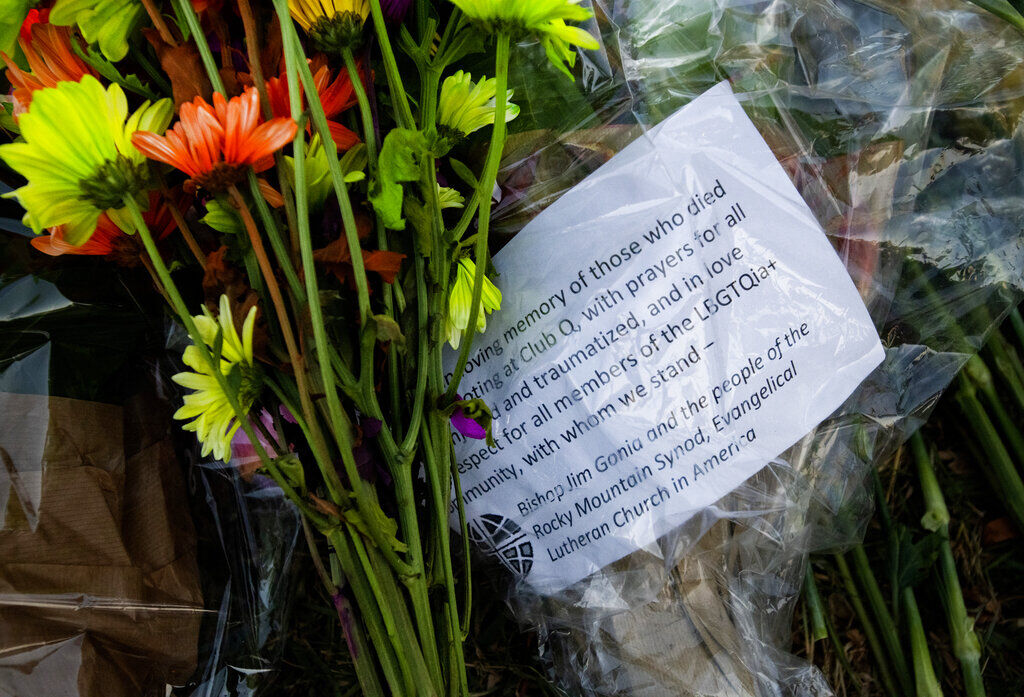 loving memory of those who died
at Club Q, with prayers for all
and traumatized, and in love
respect for all members of the LBGTQia+
community, with whom we stand –
Bishop Jim Gonia and the people of the
Rocky Mountain Synod, Evangelical
Lutheran Church in America